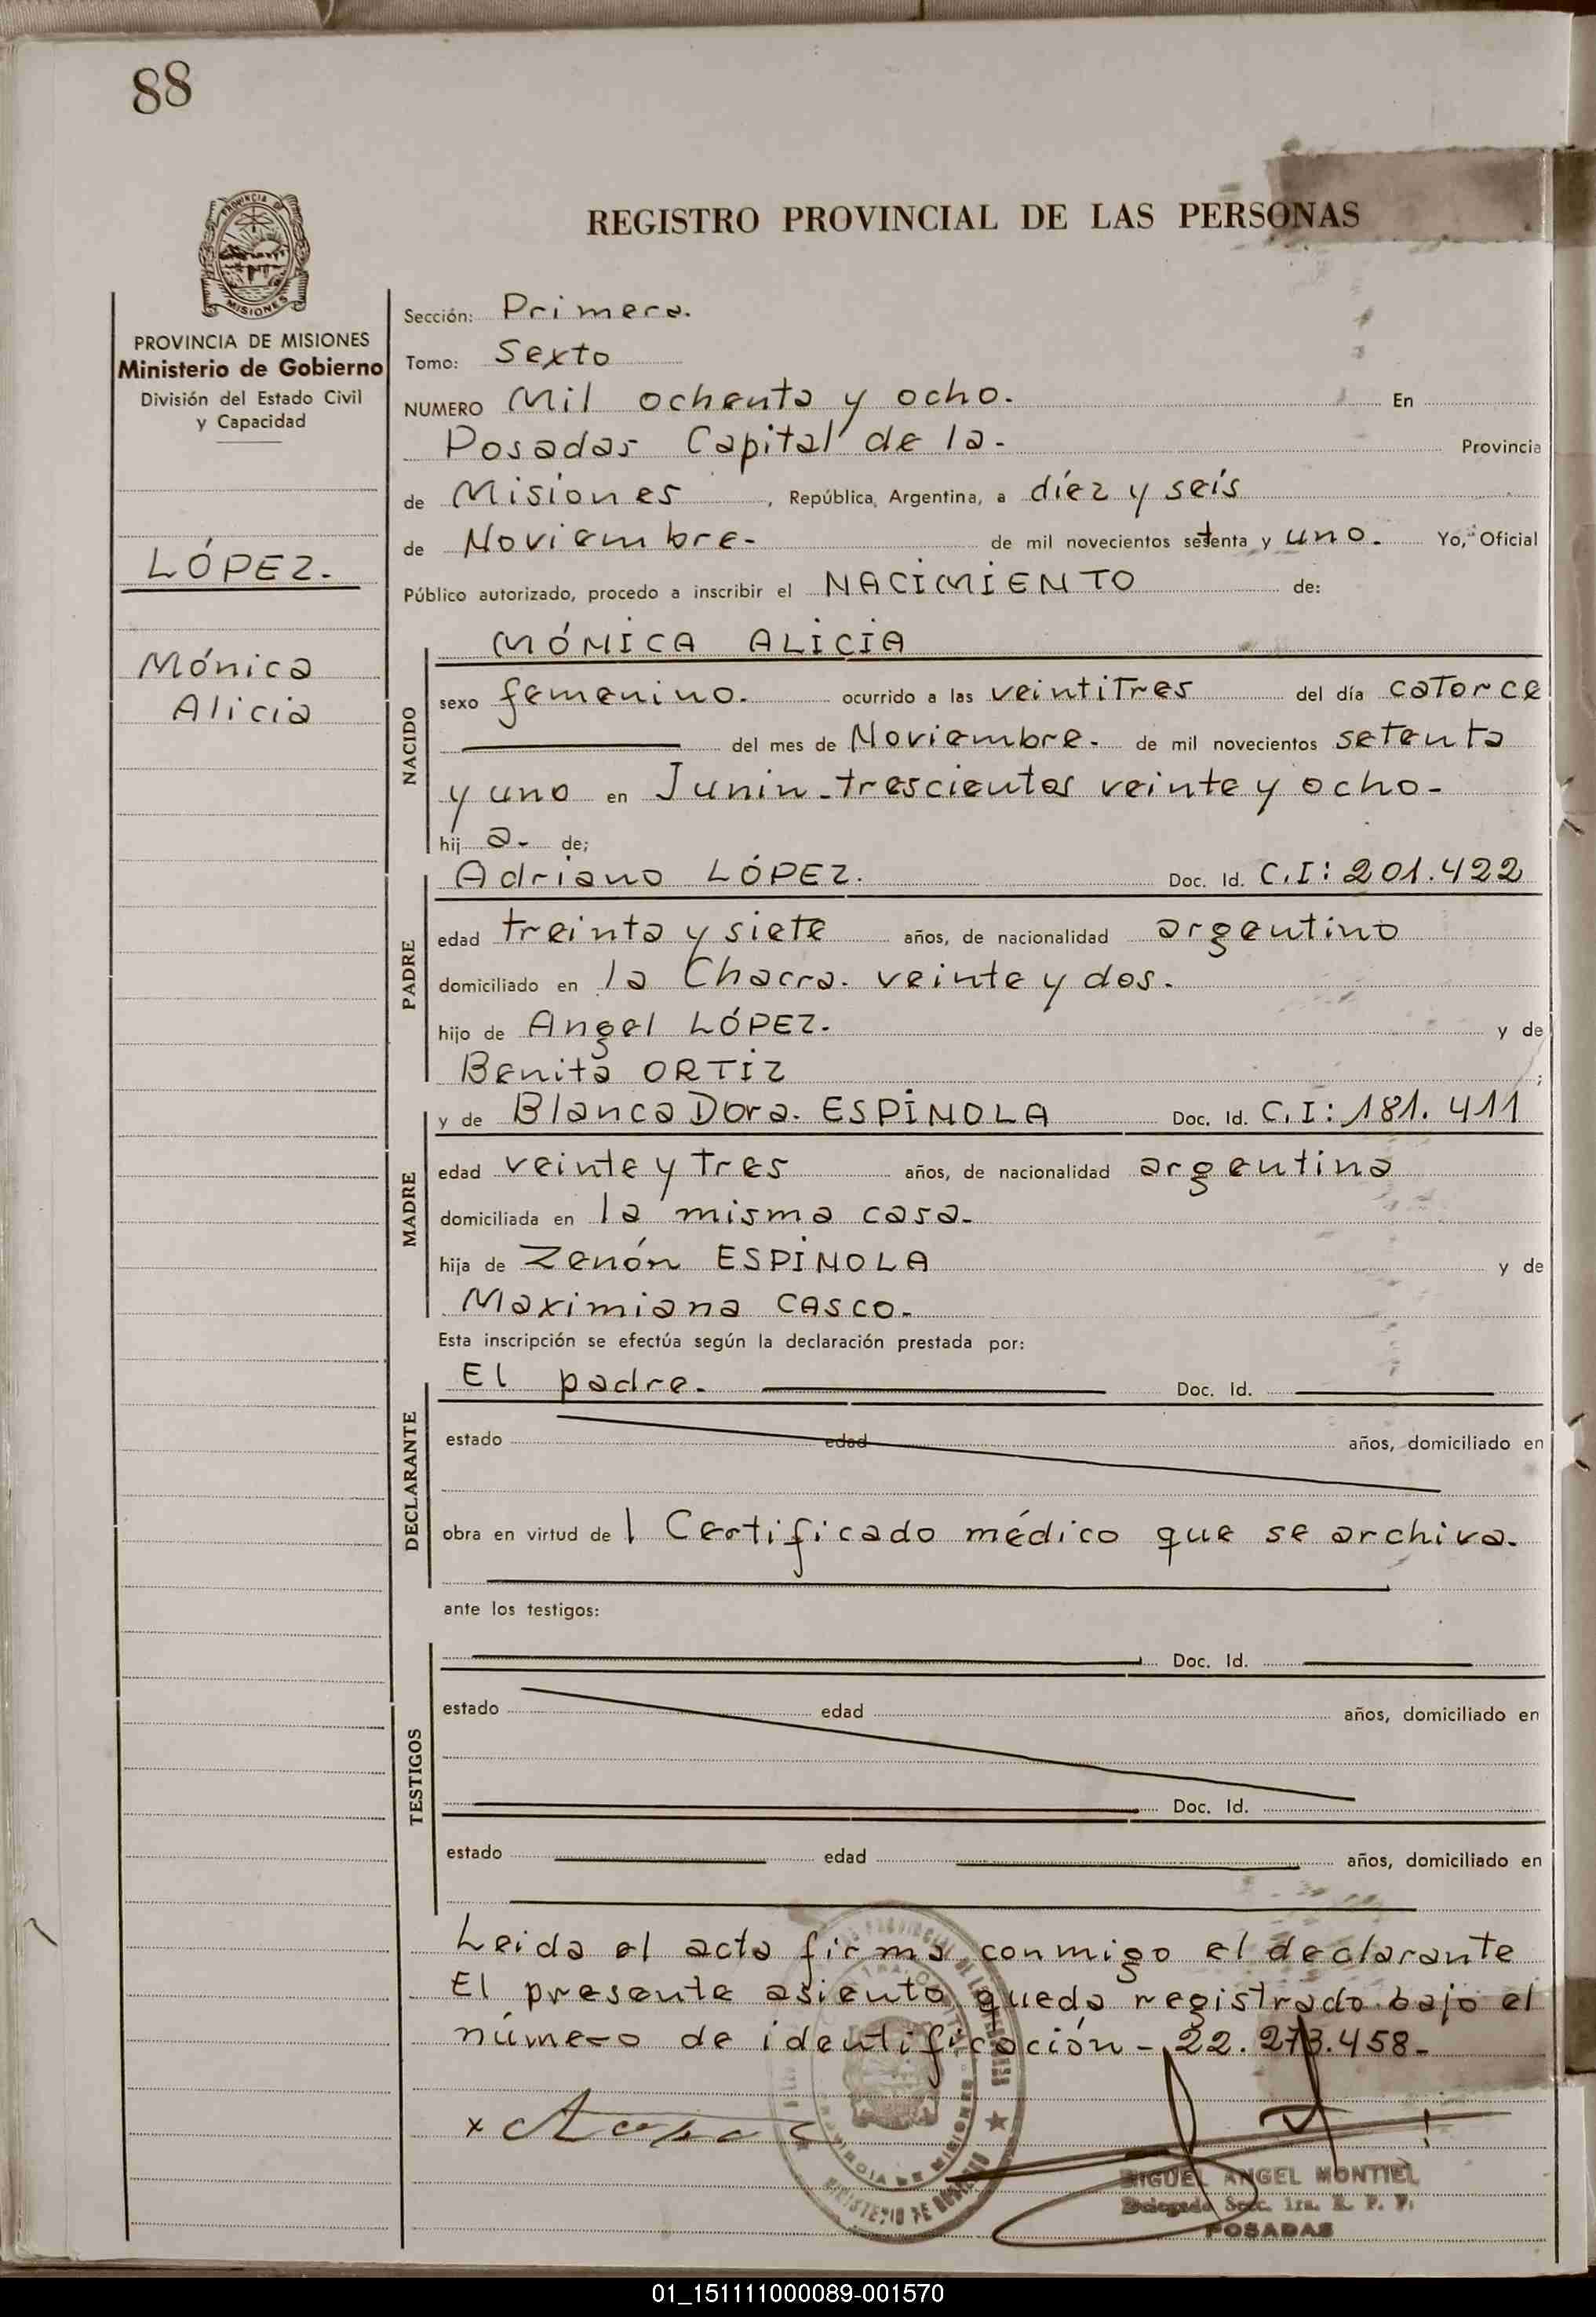 88
REGISTRO PROVINCIAL DE LAS PERSONAS
PROVINCIA DE MISIONES
Ministerio de Gobierno
División del Estado Civil
y Capacidad
LÓPEZ.
Mónica
Alicia
Sección: Primera.
Tomo: Sexto
NUMERO Mil ochenta y ocho. En
Posadas Capital de la- Provincia
de Misiones, República Argentina, a diez y seis
de Noviembre- de mil novecientos setenta y uno. Yo, Oficial
Público autorizado, procedo a inscribir el NACIMIENTO de:
NACIDO
MÓNICA ALICIA
sexo femenino. ocurrido a las veintiTres del día catorce
del mes de Noviembre. de mil novecientos setenta
y uno en Junin-trescientos veinte y ocho-
hij a- de;
PADRE
Adriano LÓPEZ. Doc. Id. C.I: 201.422
edad treinta y siete años, de nacionalidad argentino
domiciliado en la Chacra. veinte y dos.
hijo de Angel LÓPEZ. y de
Benita ORTIZ ;
MADRE
y de Blanca Dora. ESPINOLA Doc. Id. C.I: 181.411
edad veinte y Tres años, de nacionalidad argentina
domiciliada en la misma casa-
hija de Zenón ESPINOLA y de
Maximiana CASCO-
Esta inscripción se efectúa según la declaración prestada por:
DECLARANTE
El padre. Doc. Id.
estado edad años, domiciliado en
obra en virtud de 1 Certificado médico que se archiva.
ante los testigos:
TESTIGOS
Doc. Id.
estado edad años, domiciliado en
Doc. Id.
estado edad años, domiciliado en
Leida el acta firma conmigo el declarante
El presente asiento queda registrado bajo el
número de identificación - 22.273.458-
x
MIGUEL ANGEL MONTIEL
Delegado Secc. 1ra. R. P. P.
POSADAS
01_151111000089-001570